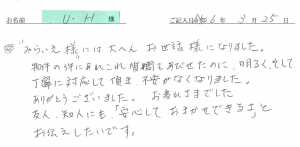 お名前 U-H 様 ご記入日 R6年 3月 25日
◎ "みらいえ様"には大へん お世話様になりました。
物件の件にあれこれ質問をあびせたのに、明るく、そして
丁寧に対応して頂き、不安がなくなりました。
ありがとうございました。 お疲れさまでした
友人、知人にも、「安心して おまかせできるよ」と
お伝えしたいです。